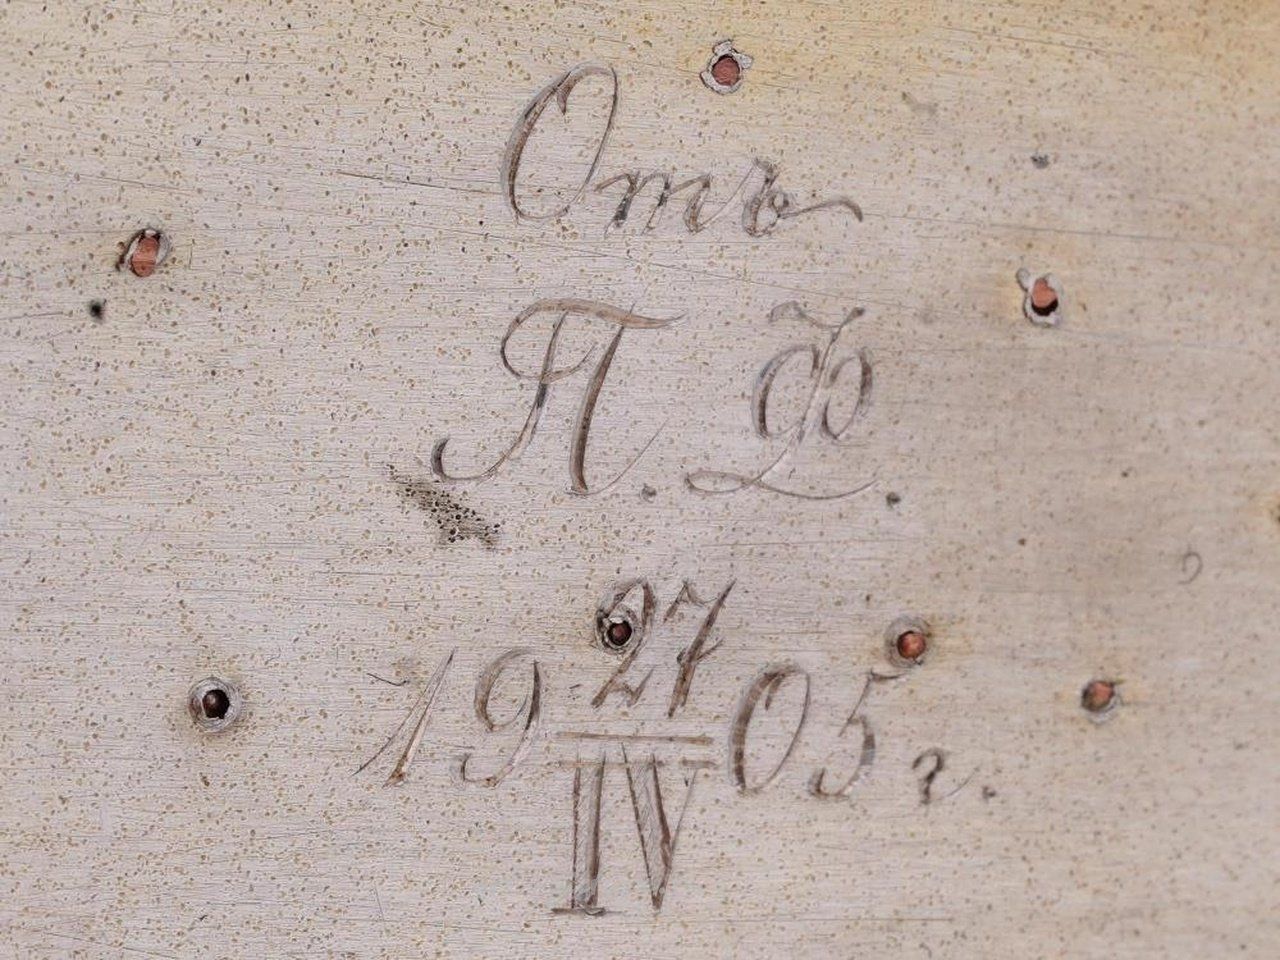 Отъ
П. Ф.
19 27/IV 05 г.